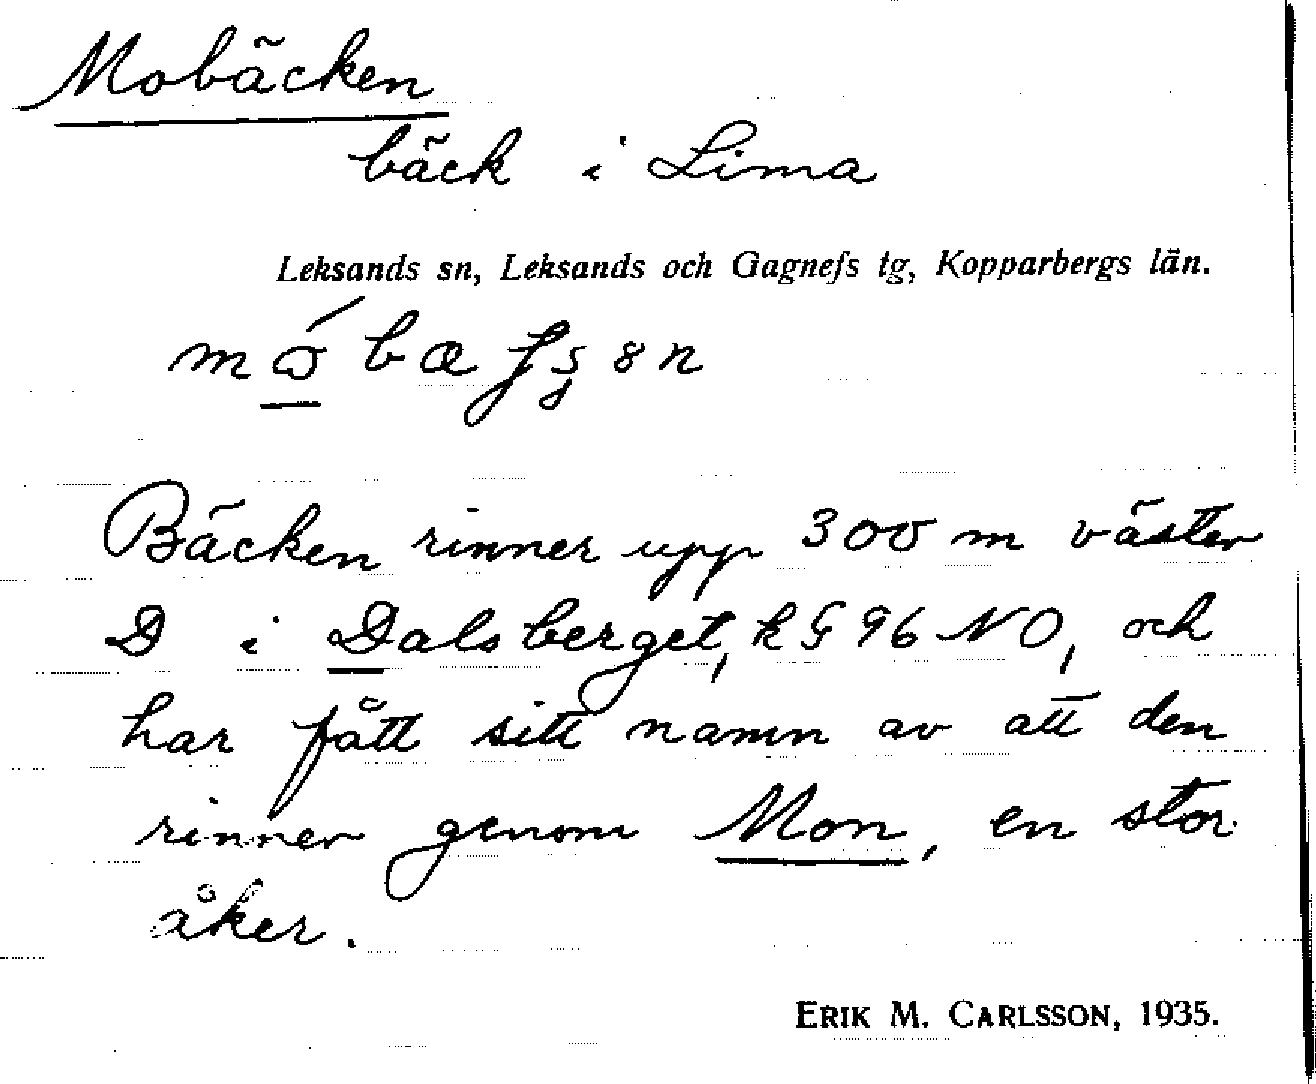 Mobäcken
bäck i Lima
Leksands sn, Leksands och Gagnefs tg, Kopparbergs län.
Bäcken rinner upp 300 m väster
D i Dalsberget, k G 96 NO, och
har fått sitt namn av att den
rinner genom Mon, en stor
åker.
ERIK M. CARLSSON, 1935.